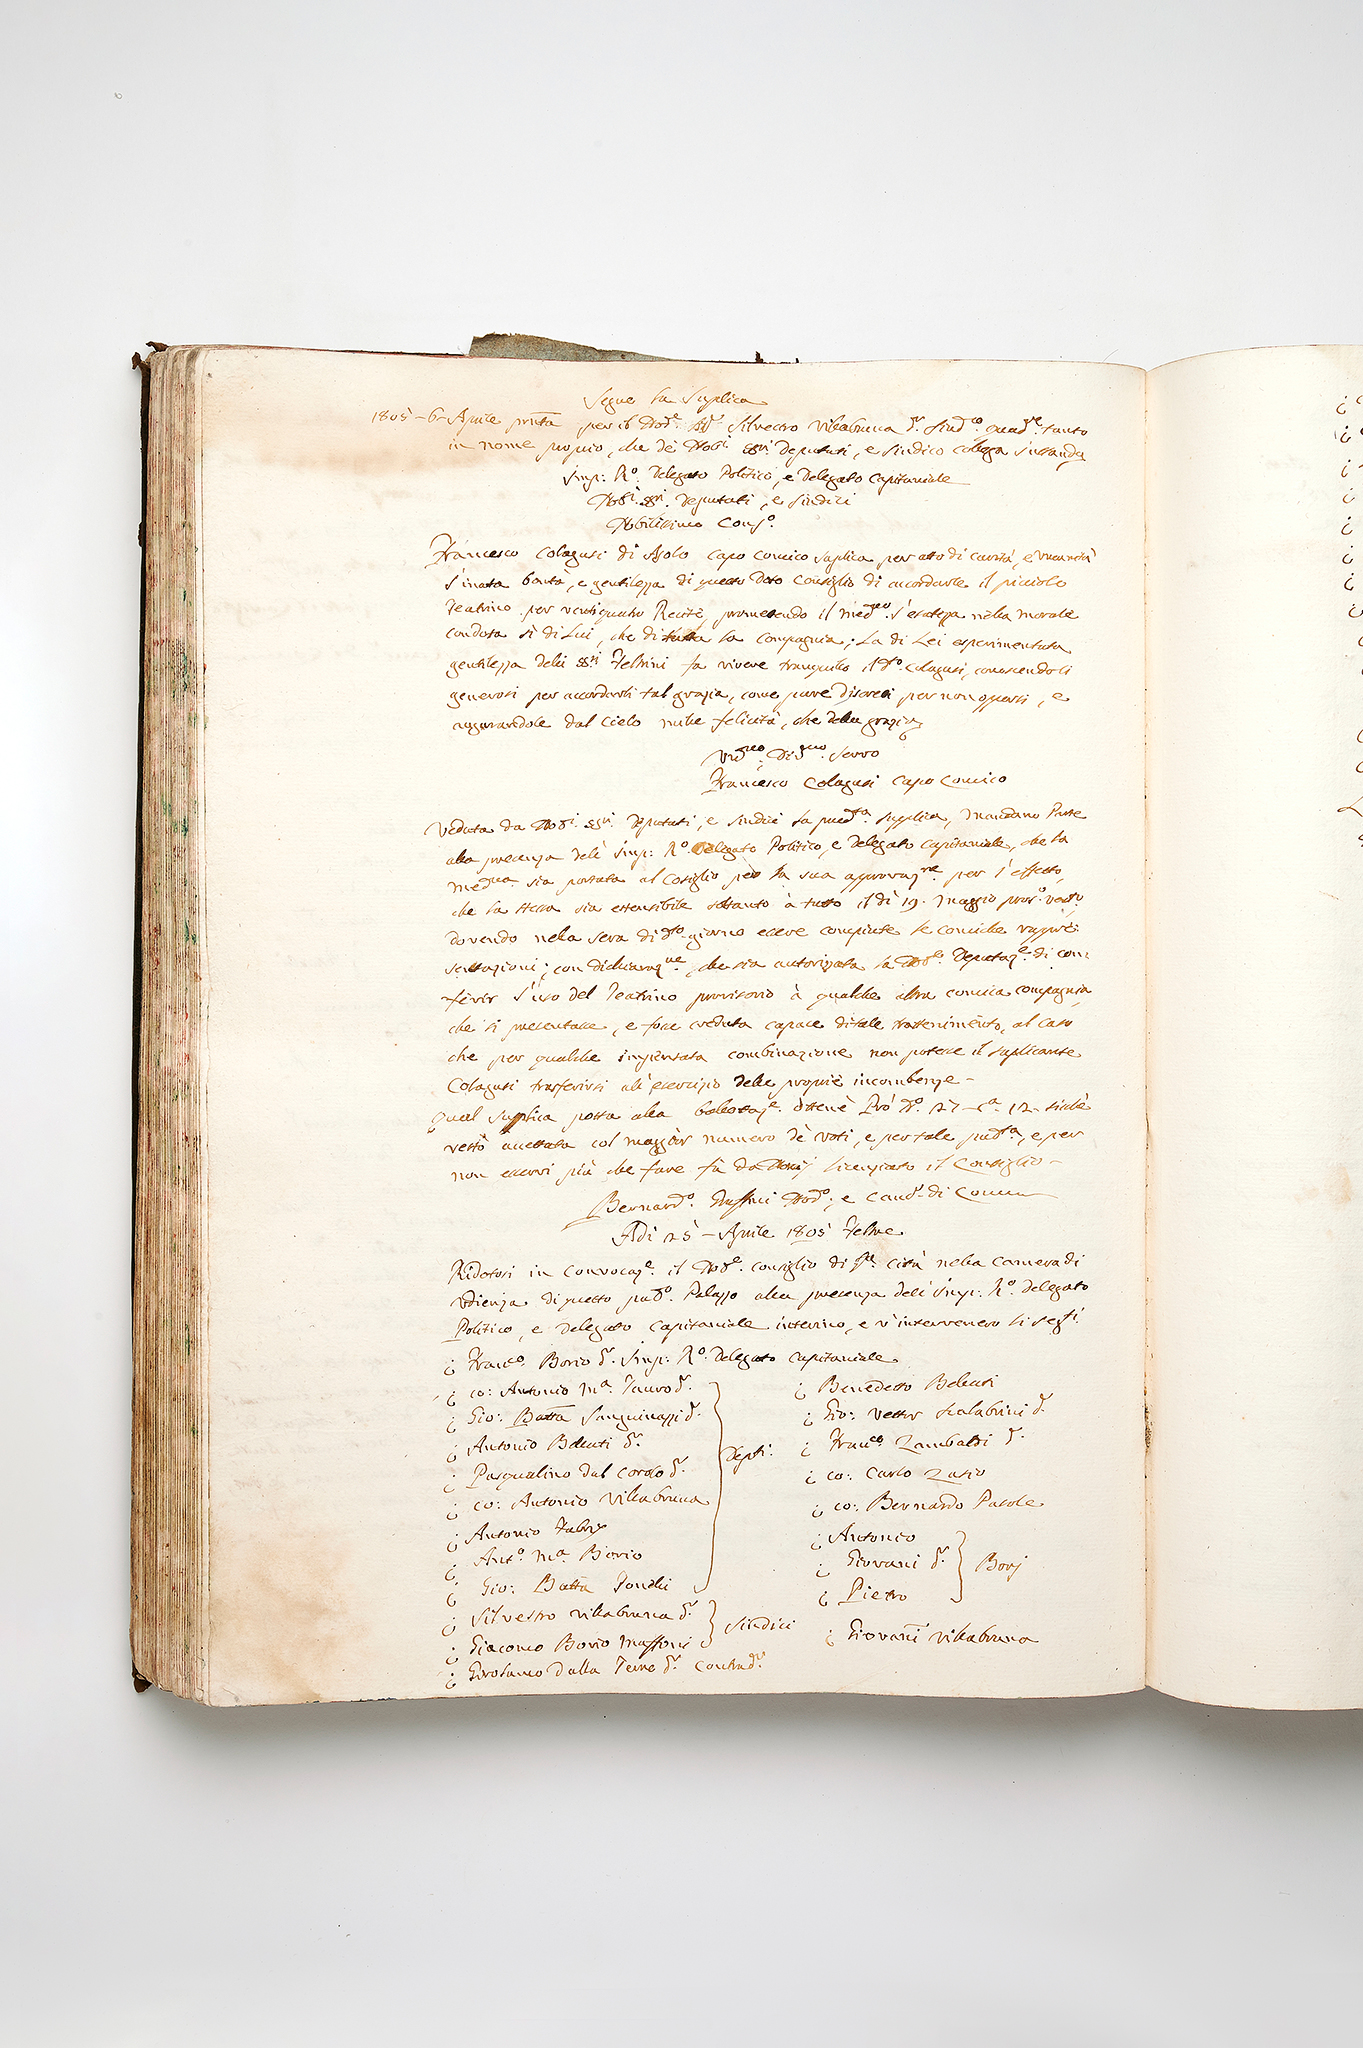 Segue la Suplica
1805 - 6 - Aprile pntta per il Nobe. Sigr Silvestro Villabruna Dr. Sindco quade. tanto
in nome proprio, che de Nobi. SSri. Deputati, e Sindico colega instando
Imp: Ro. Delegato Politico, e Delegato Capitaniale
Nobi. SSri. Deputati, e Sindici
Nobilissimo Conso.
Francesco Colagusi di Asolo Capo Comico Suplica per atto di carità, e umanità
l'inata bontà, e gentilezza di questo Dotto Consiglio di accordarle il picciolo
Teatrino per ventiquatro Recite, prometendo il medmo. l'esatezza nella morale
condota sì di Lui, che di tutta la compagnia; La di Lei esperimentata
gentilezza delli SSri Feltrini fa vivere tranquillo il do. Colagusi, conoscendoli
generosi per accordarli tal grazia, come pure discreti per non opporsi, e
augurandole dal Cielo mille felicità, che della grazia
Umo. Divmo Servo
Francesco Colagusi Capo Comico
Veduta da Nobi. SSri. Deputati, e Sindici la predta. Supplica, Mandano Parte
alla presenza dell' Imp: Ro. Delegato Politico, e Delegato Capitaniale, che la
medma. sia portata al Cosiglio per la sua approvazne. per l'effetto,
che la stessa sia estensibile soltanto à tutto il dì 19. Maggio prosso. ventu.
dovendo nella sera di do. giorno essere compiute le comiche rappre-
sentazioni; con dichiarazne., che sia autorizata la Nobe. Deputaze. di con-
ferir l'uso del Teatrino provisorio à qualche altra comica compagnia,
che si presentasse, e fosse creduta capace di tale trattenimento, al caso
che per qualche impensata combinazione non potesse il suplicante
Colagusi trasferirsi all' esercizio delle proprie incombenze -
Qual Suplica posta alla balottaze. ottenè Prò No. 27 - Ca. 12 - sicchè
restò accettata col maggior numero de voti, e per tale pubta, e per
non esservi più che fare fù da Nonj licenziato il Consiglio -
Bernardo. Nodo. e Canr. di Comun
Adì 25 - Aprile 1805 Feltre
Ridotosi in Convocaze. il Nobe. Consiglio di qta. città nella Camera di
Udienza di questo pubo. Palazzo alla presenza dell' Imp: Ro. Delegato
Politico, e Delegato Capitaniale interino, e v'intervenero li segti.
Franco. Borio Dr. Imp: Ro. Delegato Capitaniale
co: Antonio Ma. Tauro Dr.
Gio: Batta Sanguinazzi Dr.
Antonio Bellati Dr.
Pasqualino dal Corolo Dr.
co: Antonio Villabruna
Antonio Fabris
Anto. Ma. Borio
Gio: Batta Tonelli
Depti.
Silvestro Villabruna Dr.
Giacomo Borio Maffoni
Sindici
Girolamo Dalla Torre Dr. Contradr.
Benedetto Bellati
Gio: Vettor Scalabrini Dr.
Franco. Zambaldi Dr.
co: Carlo Zasio
co: Bernardo Pasole
Antonio
Giovani Dr.
Pietro
Borj
Giovani Villabruna